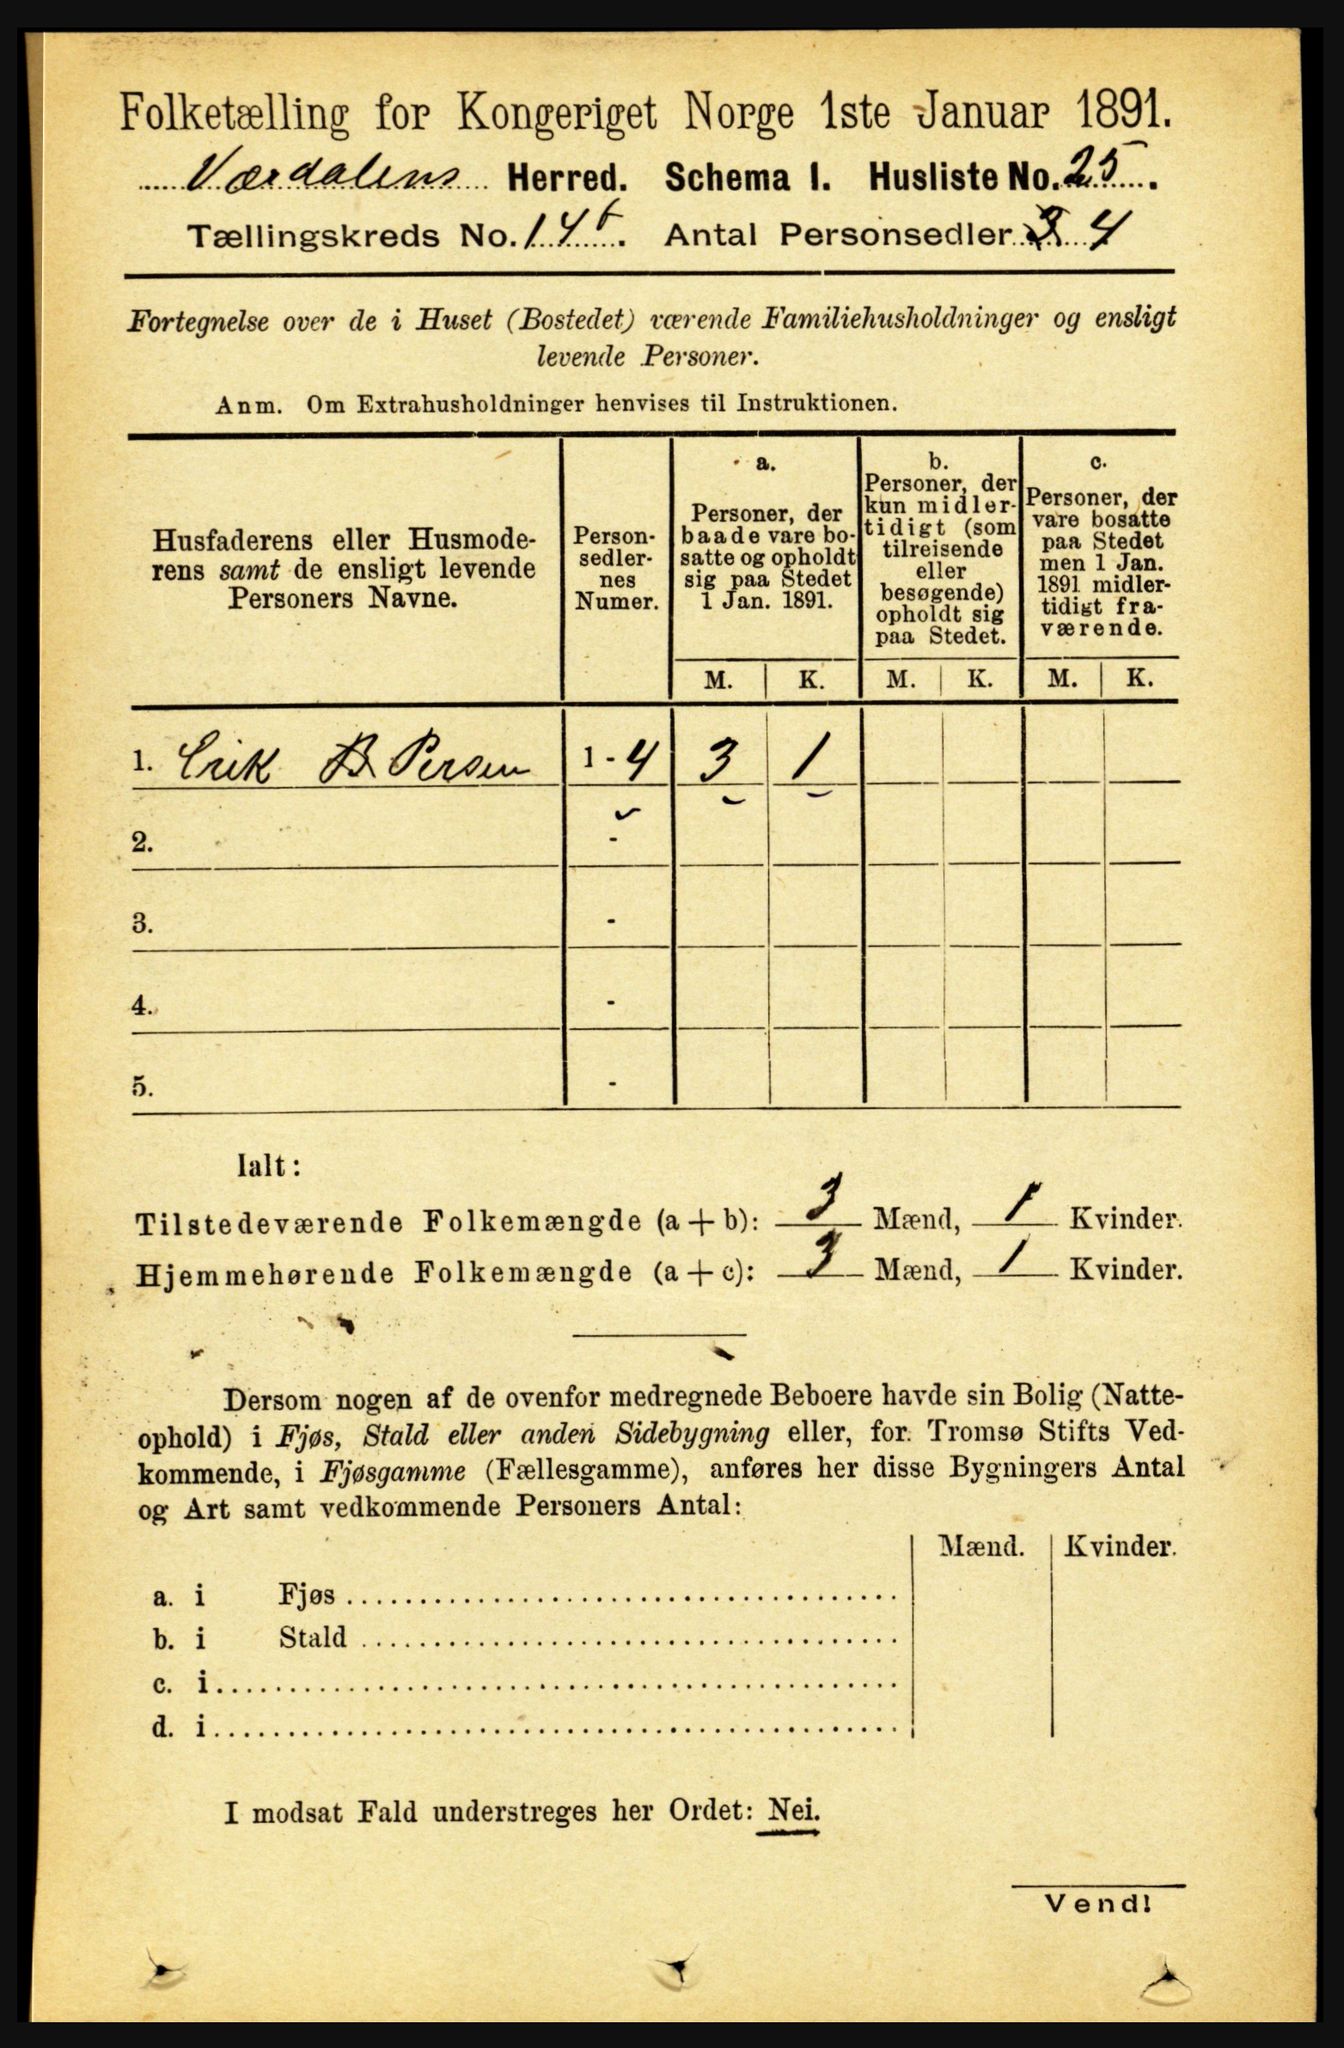 Folketælling for Kongeriget Norge 1ste Januar 1891.
Værdalens Herred. Schema I. Husliste No. 25.
Tællingskreds No. 14 b. Antal Personsedler 3 4
Fortegnelse over de i Huset (Bostedet) værende Familiehusholdninger og ensligt
levende Personer.
Anm. Om Extrahusholdninger henvises til Instruktionen.
Husfaderens eller Husmode-
rens samt de ensligt levende
Personers Navne.
Person-
sedler-
nes
Numer.
a.
Personer, der
baade vare bo-
satte og opholdt
sig paa Stedet
1 Jan. 1891.
b.
Personer, der
kun midler-
tidigt (som
tilreisende
eller
besøgende)
opholdt sig
paa Stedet.
c.
Personer, der
vare bosatte
paa Stedet
men 1 Jan.
1891 midler-
tidigt fra-
værende.
M. K. M. K. M. K.
1. Erik B. Persen 1 - 4 3 1
2. -
3. -
4. -
5. -
Ialt:
Tilstedeværende Folkemængde (a + b): 3 Mænd, 1 Kvinder.
Hjemmehørende Folkemængde (a + c): 3 Mænd, 1 Kvinder.
Dersom nogen af de ovenfor medregnede Beboere havde sin Bolig (Natte-
ophold) i Fjøs, Stald eller anden Sidebygning eller, for Tromsø Stifts Ved-
kommende, i Fjøsgamme (Fællesgamme), anføres her disse Bygningers Antal
og Art samt vedkommende Personers Antal:
Mænd. Kvinder.
a. i Fjøs
b. i Stald
c. i
d. i
I modsat Fald understreges her Ordet: Nei.
Vend!